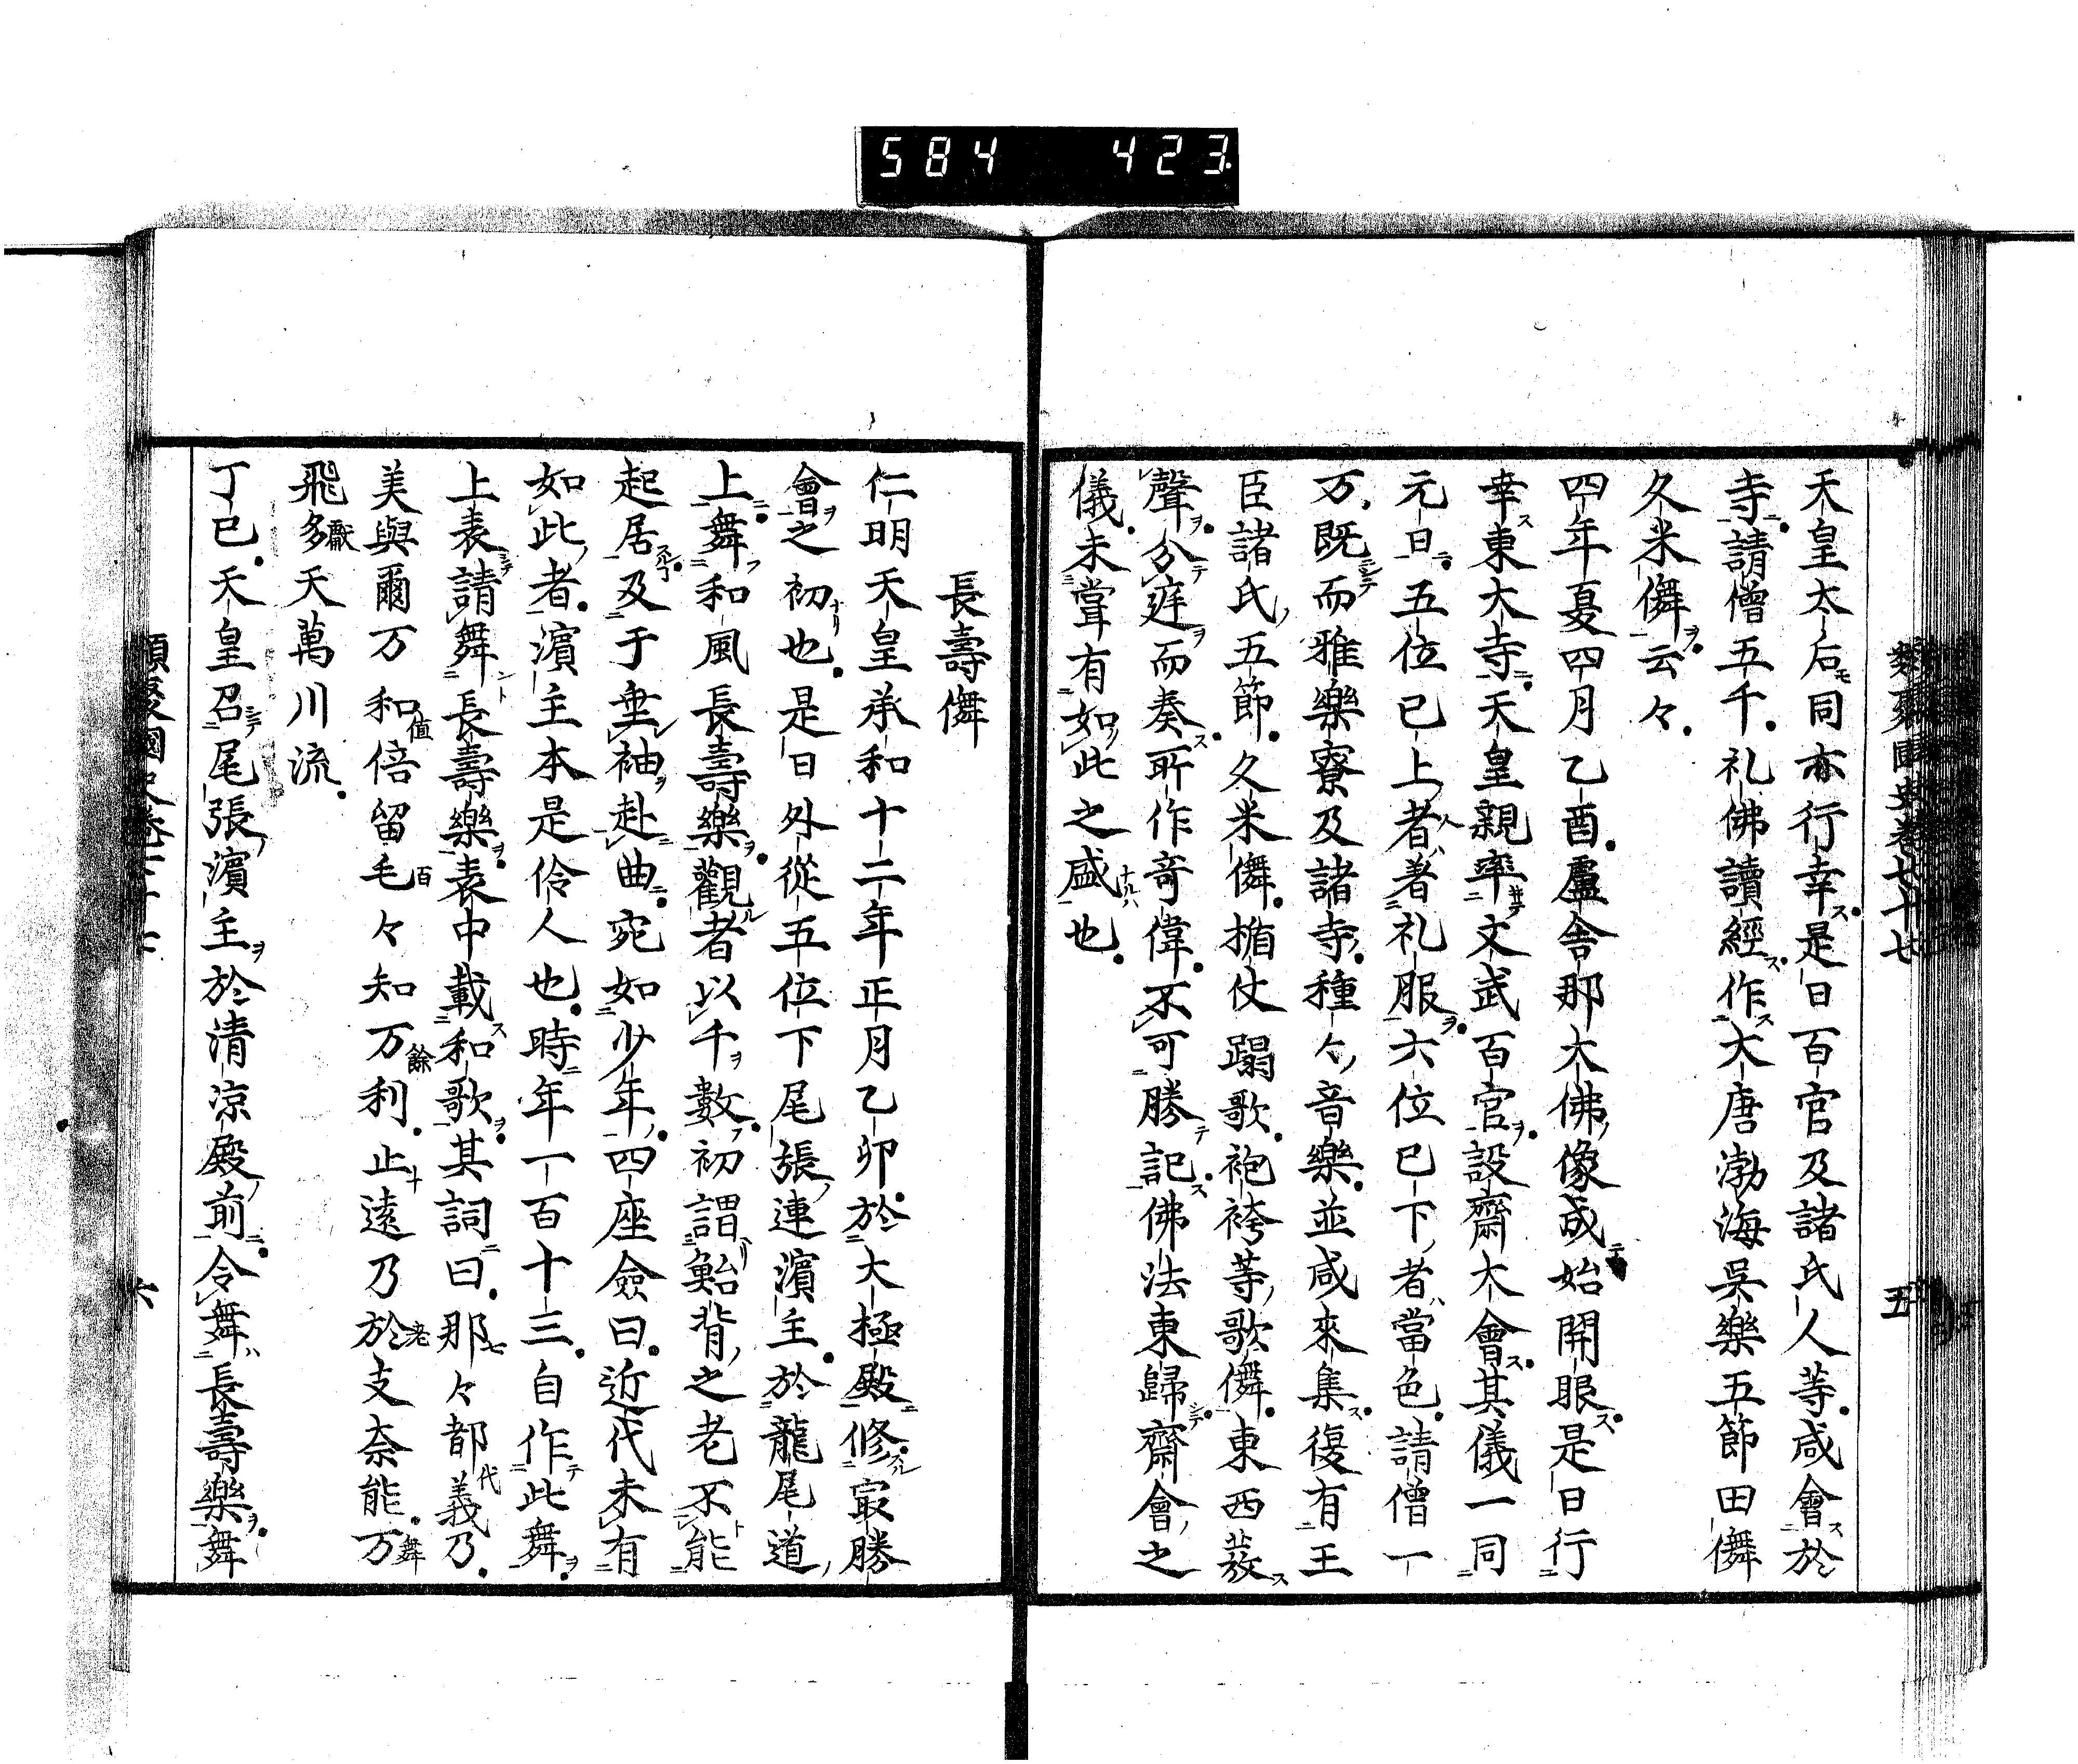 584 423
類聚國史卷七十七 五
天皇太后同亦行幸是日百官及諸氏人等咸會於
寺請僧五千礼佛讀經作大唐渤海吳樂五節田儛
久米儛云々
四年夏四月乙酉盧舍那大佛像成始開眼是日行
幸東大寺天皇親率文武百官設齋大會其儀一同
元日五位已上者著礼服六位已下者當色請僧一
万既而雅樂寮及諸寺種々音樂並咸來集復有王
臣諸氏五節久米儛楯伏蹋歌袍袴等歌儛東西發
聲分庭而奏所作奇偉不可勝記佛法東歸齋會之
儀未甞有如此之盛也
長壽儛
仁明天皇承和十二年正月乙卯於大極殿修最勝
會之初也是日外從五位下尾張連濱主於龍尾道
上舞和風長壽樂觀者以千數初謂鮐背之老不能
起居及于垂袖赴曲宛如少年四座僉曰近代未有
如此者濱主本是伶人也時年一百十三自作此舞
上表請舞長壽樂表中載和歌其詞曰那々都義乃
美與爾万和倍留毛々知万利止遠乃於支奈能万
飛多天萬川流
丁巳天皇召尾張濱主於清涼殿前令舞長壽樂舞
類聚國史卷七十七 六